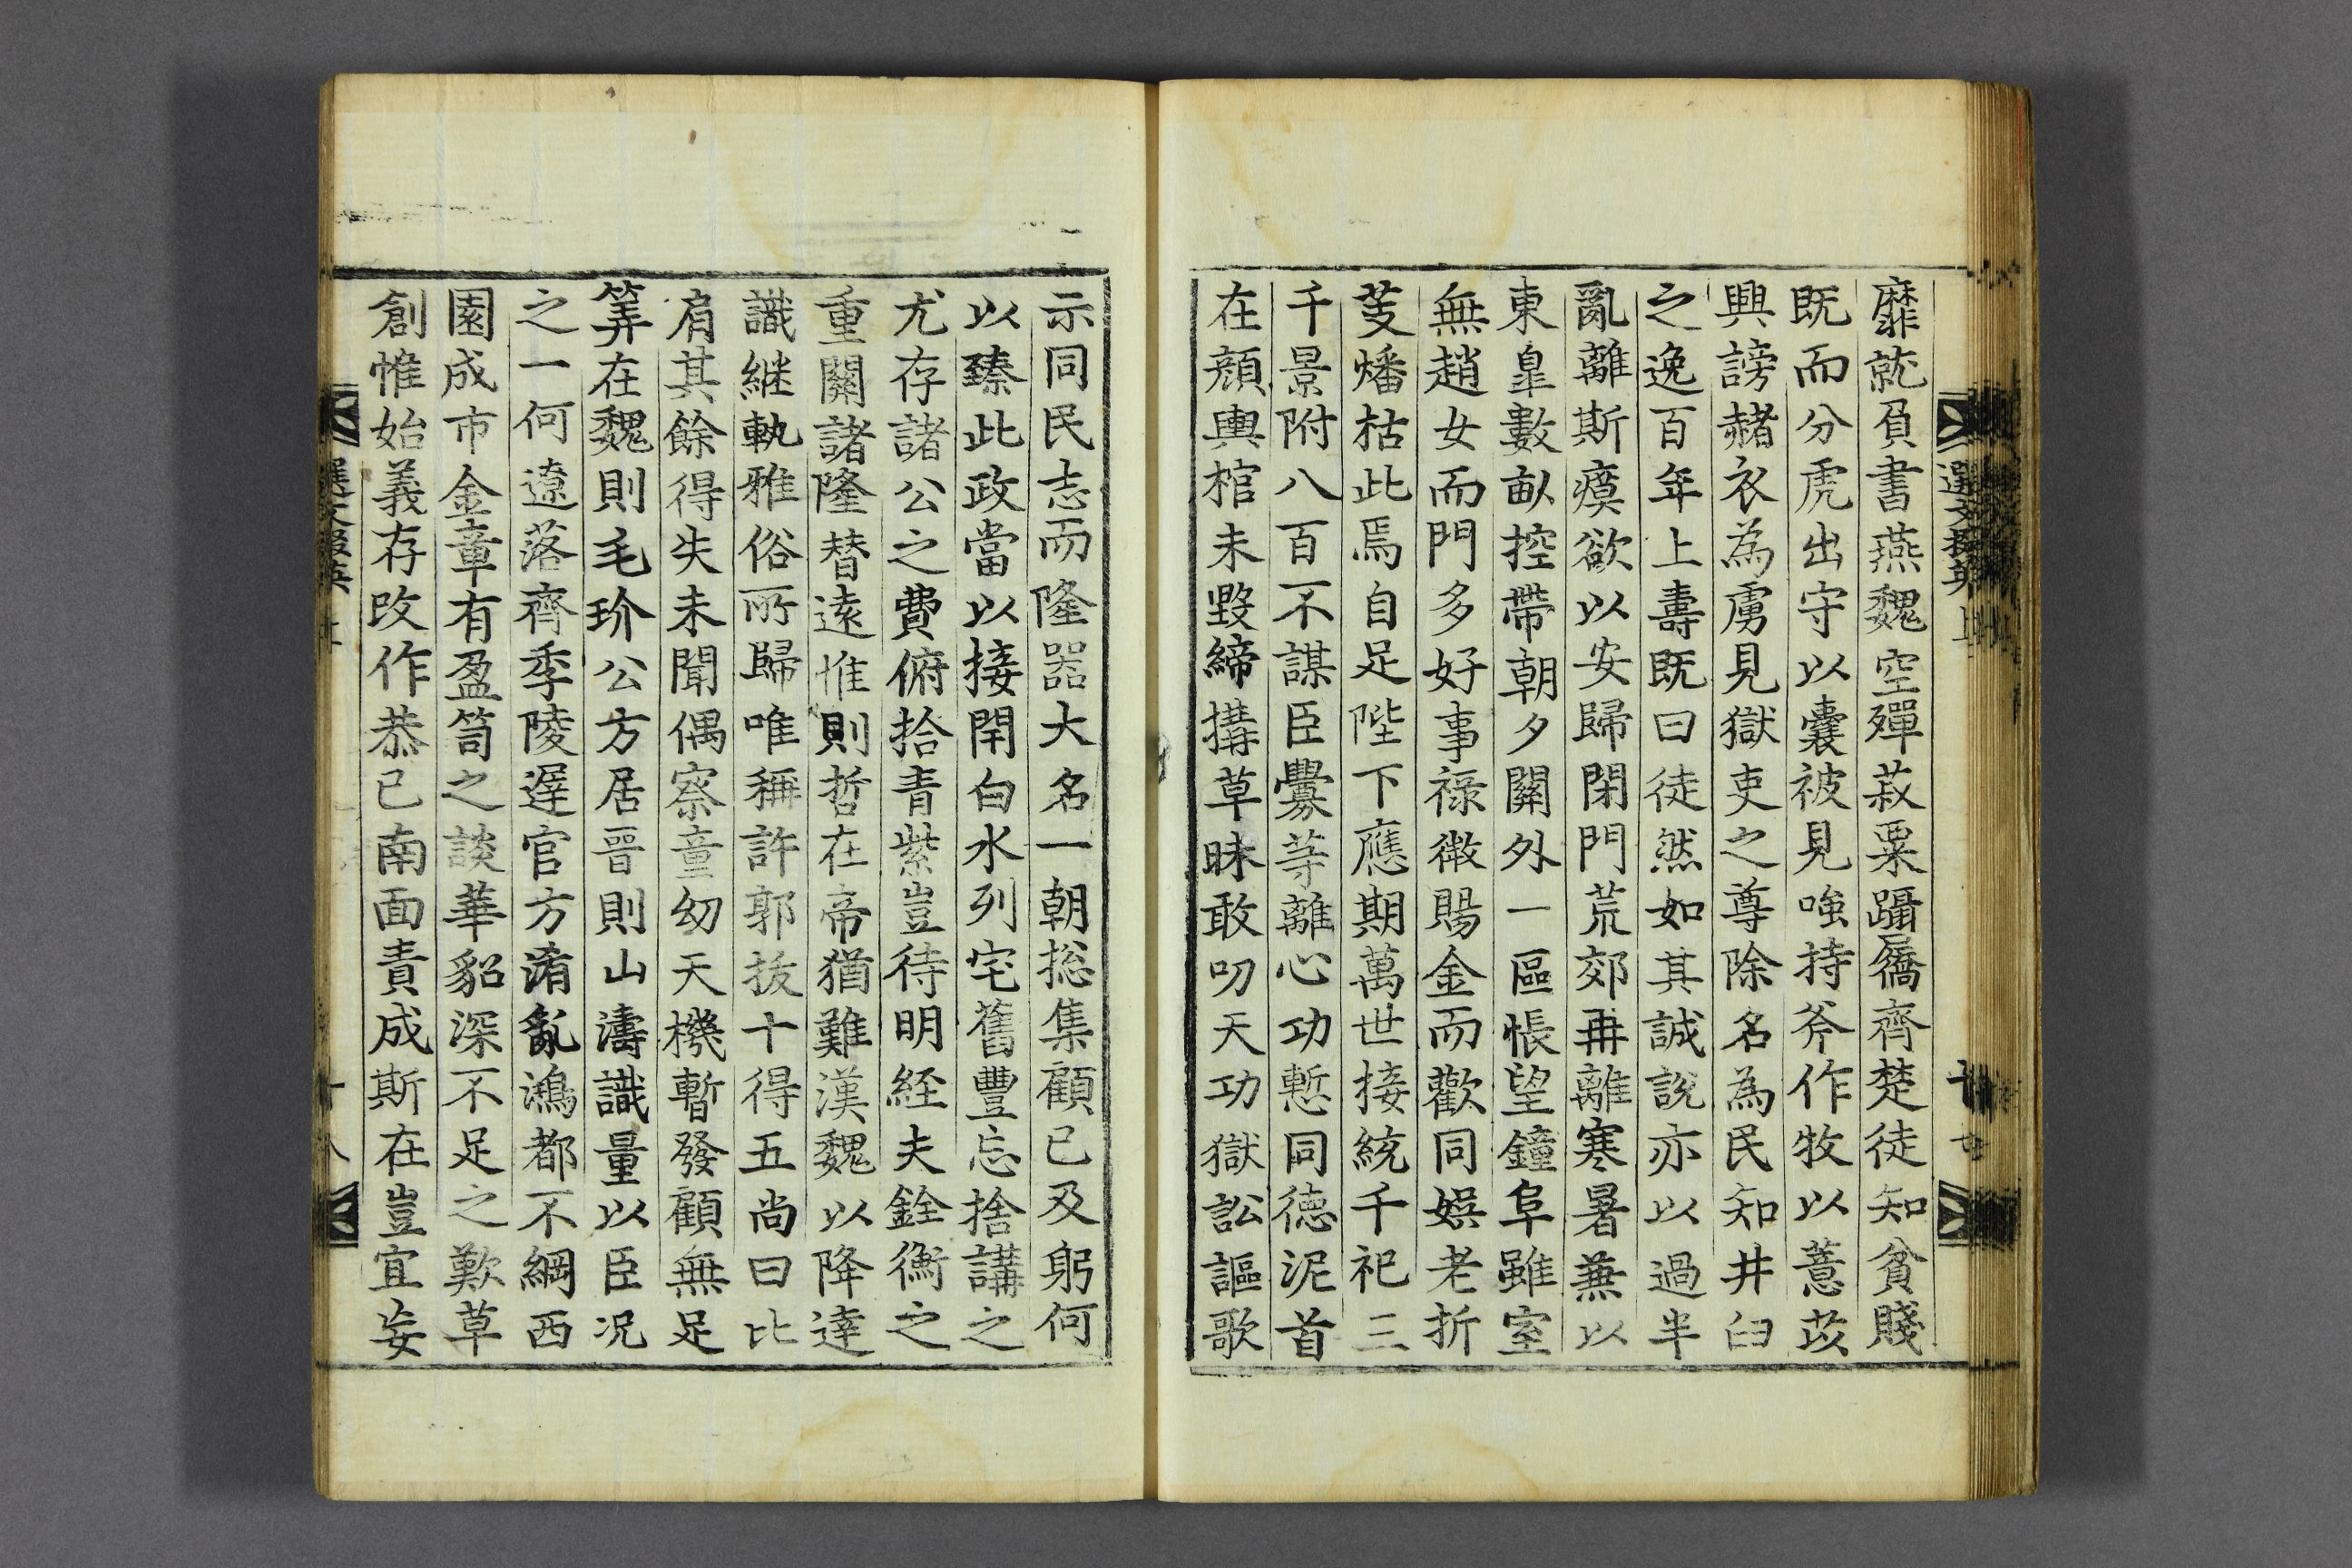 靡就負書燕魏空殫菽粟躡屩齊楚徒知貧賤
既而分虎出守以囊被見嗤持斧作牧以薏苡
興謗赭衣為虜見獄吏之尊除名為民知井臼
之逸百年上壽既曰徒然如其誠說亦以過半
亂離斯瘼欲以安歸閉門荒郊再離寒暑兼以
東皐數畝控帶朝夕關外一區悵望鐘阜雖室
無趙女而門多好事祿微賜金而歡同娛老折
芰燔枯此焉自足陛下應期萬世接統千祀三
千景附八百不謀臣釁等離心功慙同德泥首
在顏輿棺未毀締搆草昧敢叨天功獄訟謳歌
示同民志而隆器大名一朝総集顧已及躬何
以臻此政當以接閈白水列宅舊豐忘捨講之
尤存諸公之費俯拾青紫豈待明経夫銓衡之
重關諸隆替遠惟則哲在帝猶難漢魏以降達
識継軌雅俗所歸唯稱許郭拔十得五尚曰比
肩其餘得失未聞偶察童幼天機暫發顧無足
筭在魏則毛玠公方居晉則山濤識量以臣况
之一何遼落齊季陵遲官方淆亂鴻都不綱西
園成市金章有盈笥之談華貂深不足之歎草
創惟始義存改作恭已南面責成斯在豈宜妄
選文掇英 上
選文掇英 上
十八